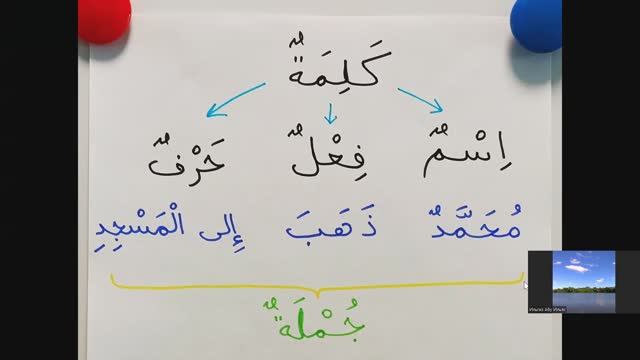 كَلِمَةٌ
اِسْمٌ فِعْلٌ حَرْفٌ
مُحَمَّدٌ ذَهَبَ إِلى الْمَسْجِدِ
جُمْلَةٌ